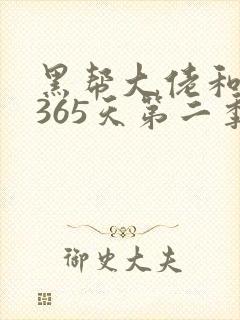 黑帮大佬和
365天第二季
御史大夫